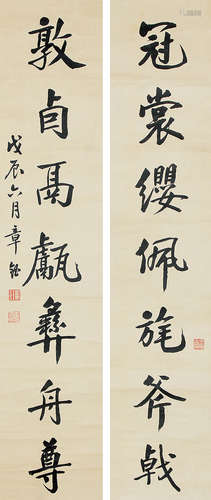 冠裳纓佩旄斧戟
敦卣鬲甗彝舟尊
戊辰六月章鈺